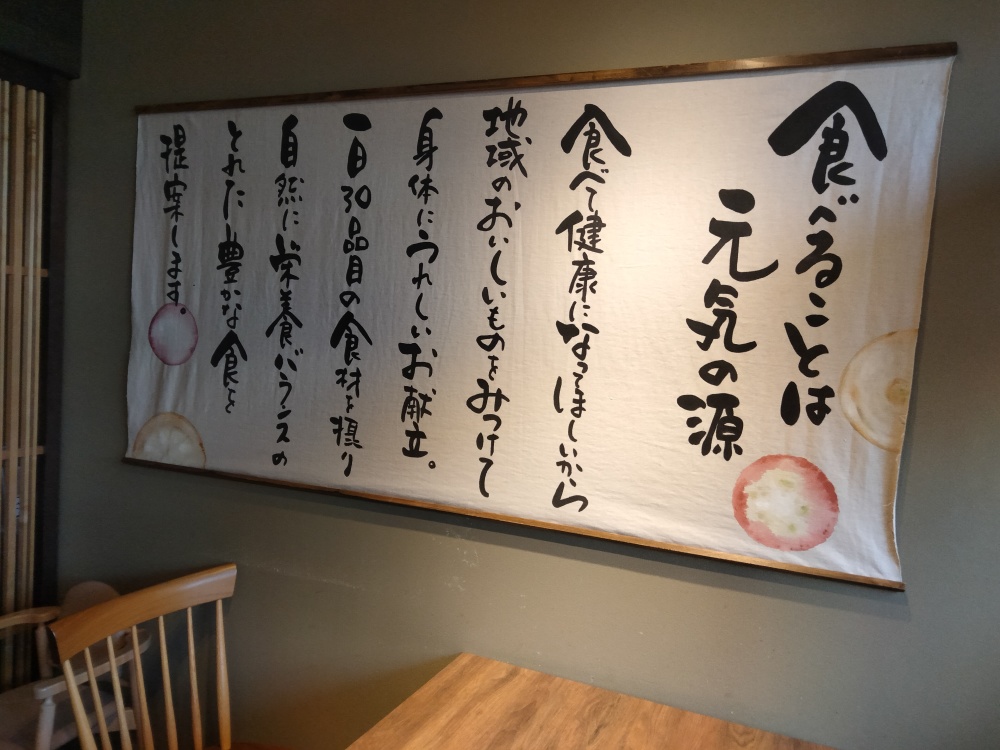 食べることは
元気の源
食べて健康になってほしいから
地域のおいしいものをみつけて
身体にうれしいお献立。
一日30品目の食材を摂り
自然に栄養バランスの
とれた豊かな食を
提案します。